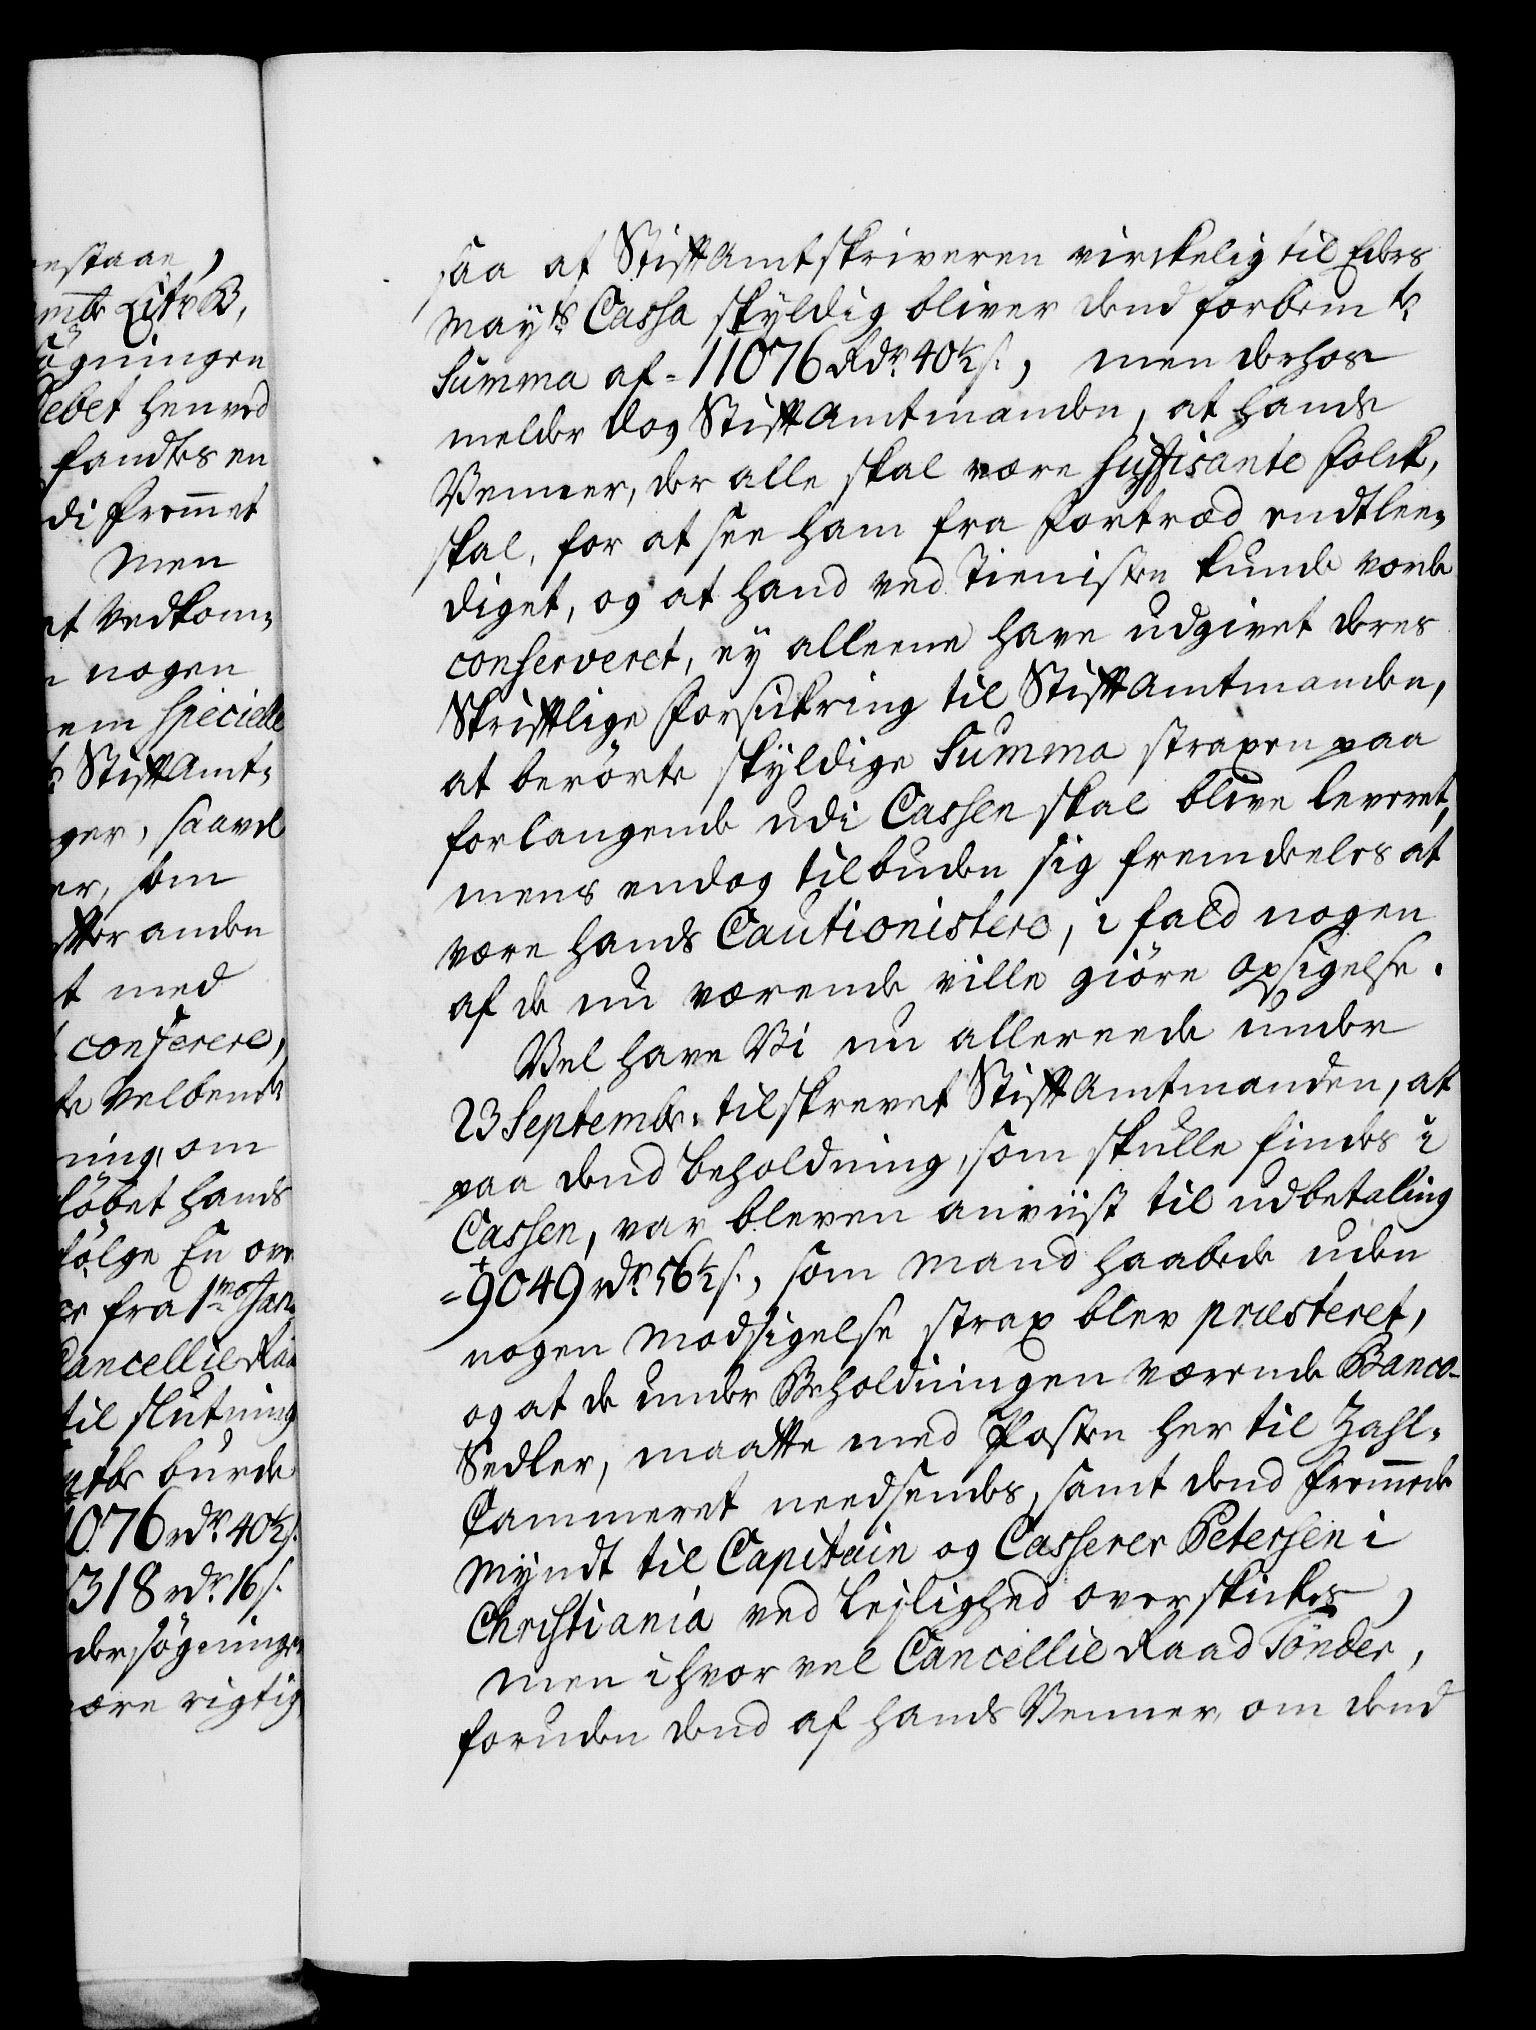 estaae,
mte Litr B,
ögningen
ebet henved
fandtes en
di fremmet
Men
et Vedkom¬
nogen
em specielle
StiftAmt¬
ger, saavel
er, som
fter anden
t med
conferere,
te Velbemte
ning, om
löbet hands
fölge En ove
er fra 1mo Jan:
Cancellie Raa
til slutning
mte burde
076 rdr. 40½ s.
318 rdr. 16 s.
dersögningen
være rigtig
saa af StiftAmtskriveren virckelig til Eders
Mayts Cassa skyldig bliver dend forbemte
Summa af = 11076 Rdr. 40½ s., men derhos
melder dog StiftAmtmanden, at hands
Venner, der alle skal være suffisante folck,
skal, for at see ham fra fortræd endtlee¬
diget, og at hand ved Tienisten kunde vorde
conserveret, ey alleene have udgivet deres
Skriftlige forsikring til StiftAmtmanden,
at berörte skyldige Summa straxen paa
forlangende udi Cassen skal blive leveret,
mens endog tilbuden sig fremdeeles at
være hands Cautionistere, i fald nogen
af de nu værende ville giöre opsigelse.
Vel have Vi nu allereede under
23 Septembr. tilskrevet StiftAmtmanden, at
paa dend beholdning, som skulle findes i
Cassen, var bleven anviist til udbetaling
= 9049 rdr. 56½ s., som mand haabede uden
nogen modsigelse strax blev præsteret,
og at de under Beholdningen værende Banco¬
Sedler, maatte med Posten her til Zahl¬
Cammeret needsendes, samt dend fremmede
Myndt til Capitain og Casserer Petersen i
Christiania ved lejlighed overskikes,
men i hvor vel Cancellie Raad Tönder,
foruden dend af hands Venner, om dend